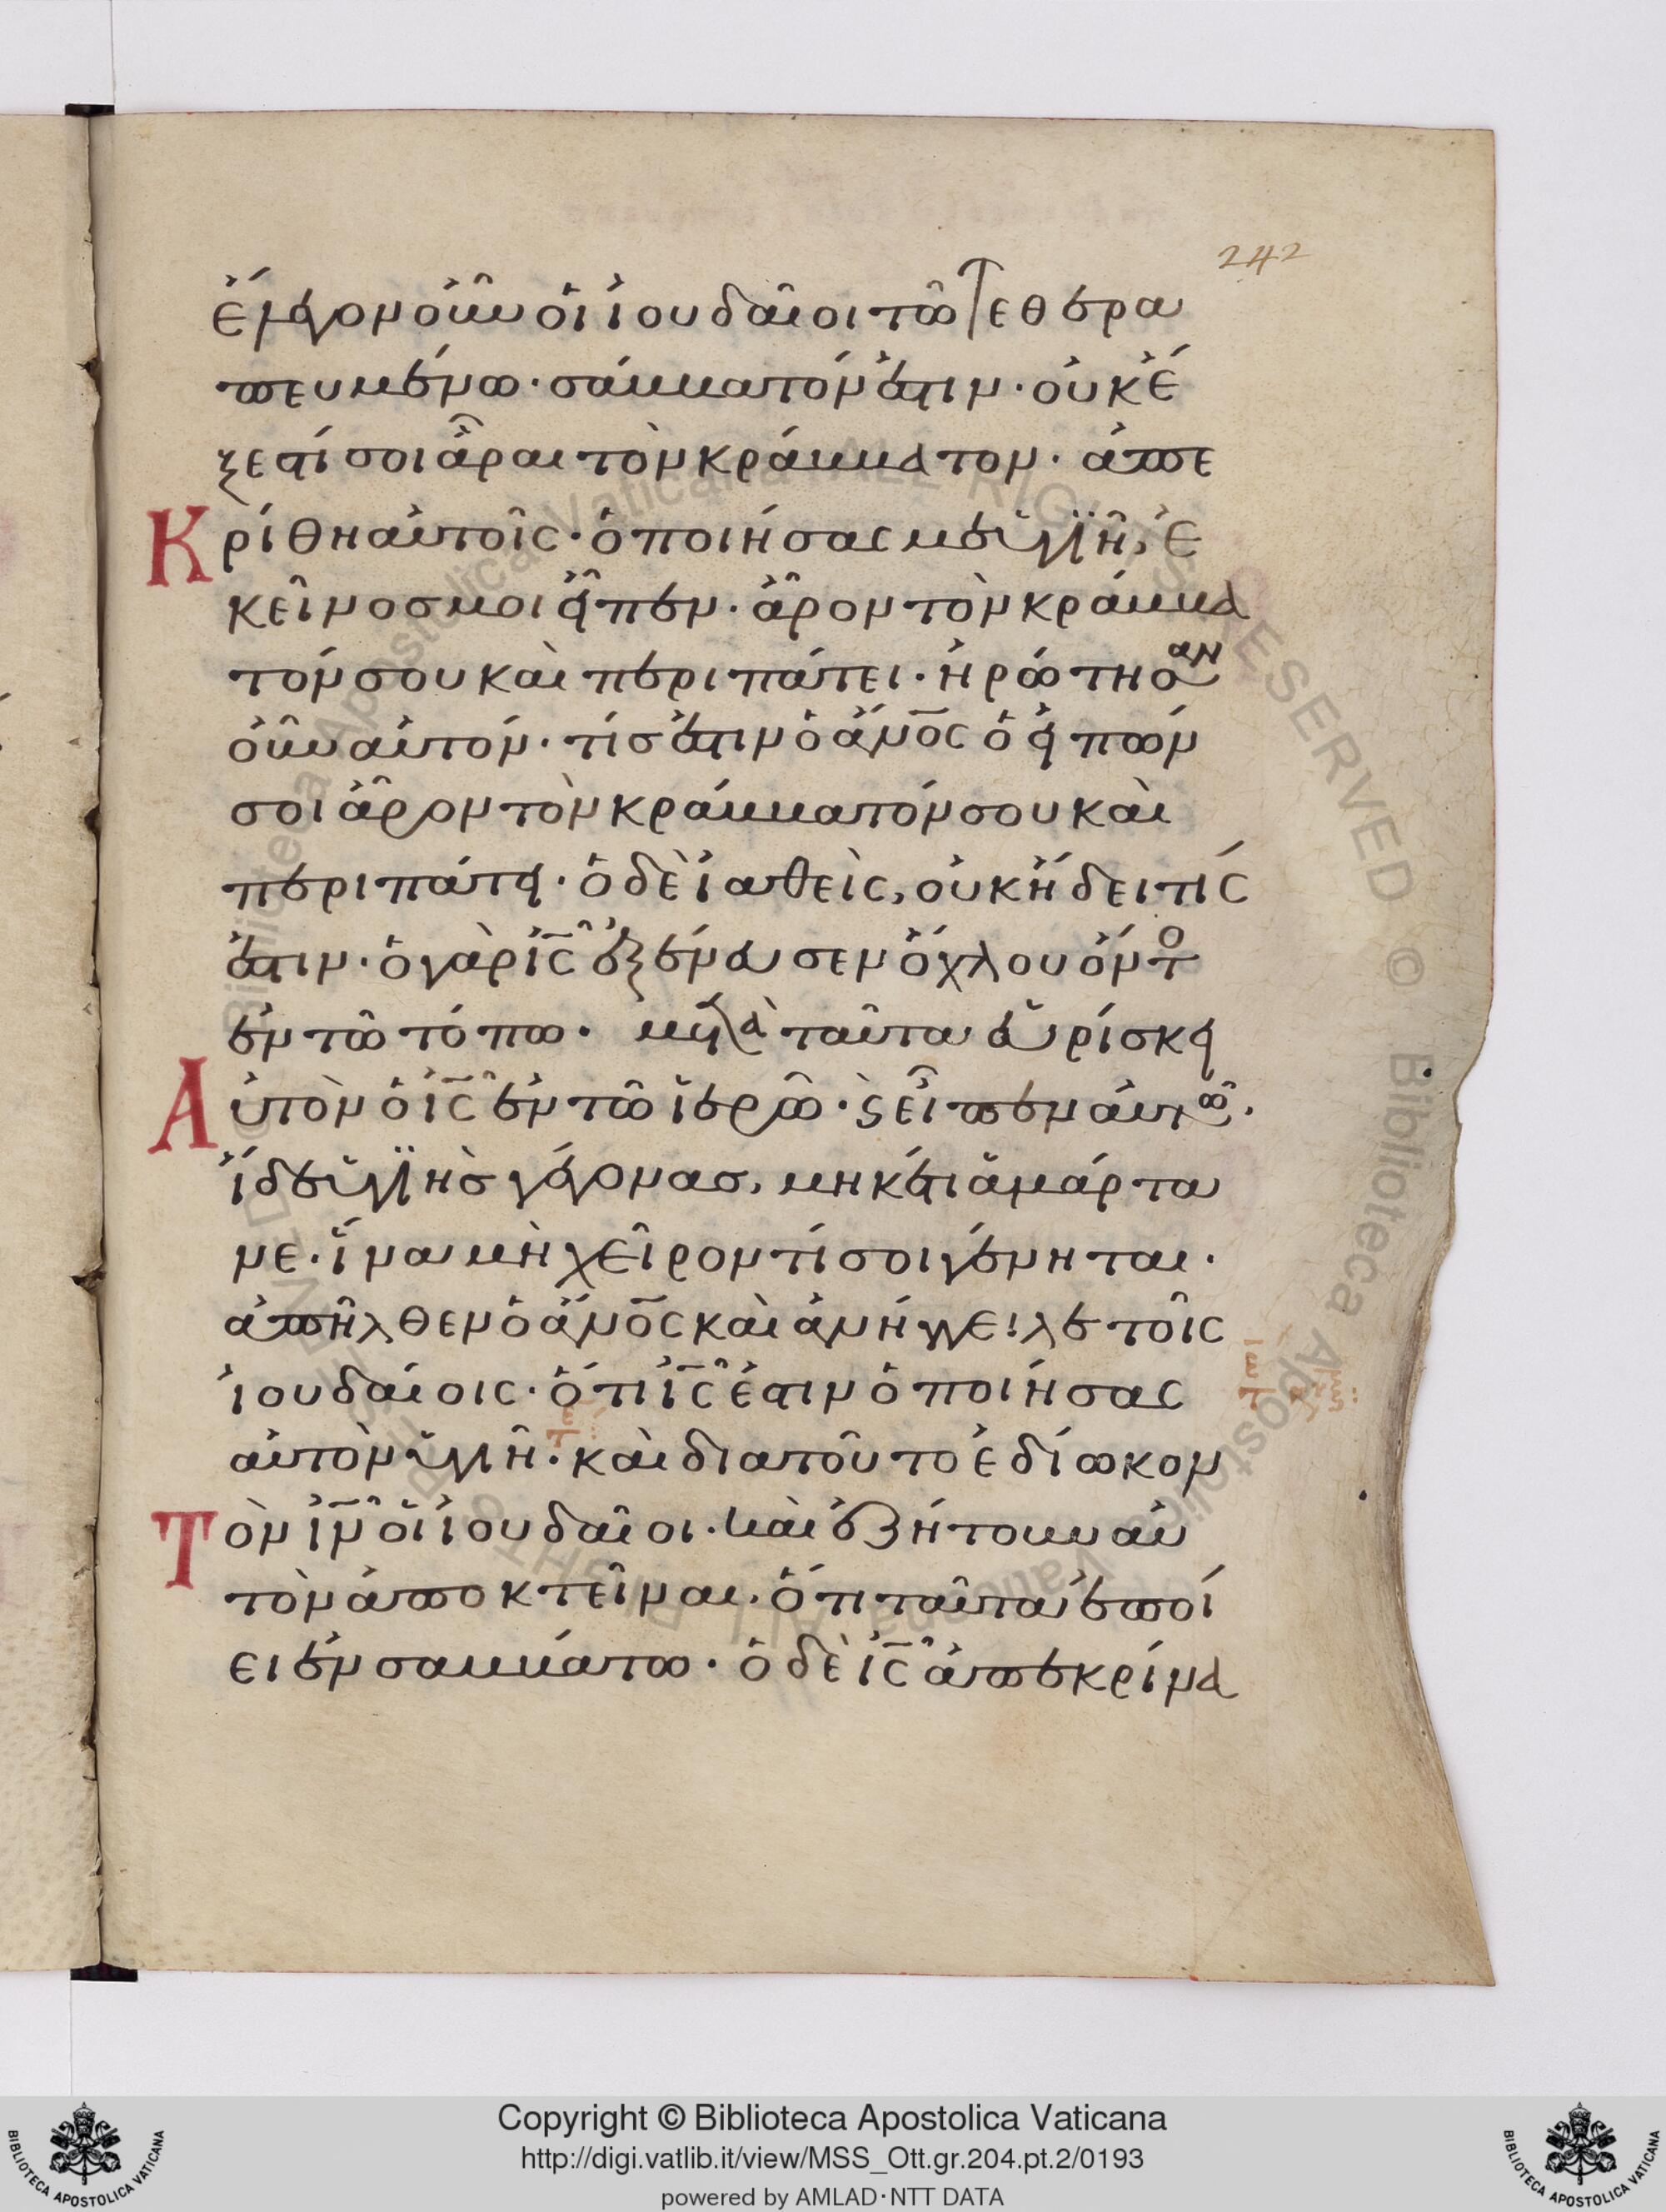 242
ἔλεγον οὖν οἱ ἰουδαῖοι τῶ τεθερα
πευμένω· σάββατόν ἐστιν· οὐκ ἔ
ξεστί σοι ἆραι τὸν κράββατον· ἀπε
Κρίθη αὐτοῖς· ὁ ποιήσας με ὑγιῆ, ἐ
κεῖνοσ μοι εἶπεν· ἆρον τὸν κράββα
τόν σου καὶ περιπάτει· ἠρώτησαν
οὖν αὐτόν· τίσ ἐστιν ὁ ἄνος ὁ εἰπών
σοι ἆρον τὸν κράββατόν σου καὶ
περιπάτει· ὁ δὲ ἰαθεὶς, οὐκ ἤδει τίς
ἐστιν· ὁ γὰρ ις ἐξένευσεν ὄχλου ὄντο
ἐν τῶ τόπω· μετὰ ταῦτα εὑρίσκει
Αὐτὸν ὁ ις ἐν τῶ ἱερῶ· ϛ εἶπεν αὐτῶ·
ἴδε ὑγιὴσ γέγονασ, μηκέτι ἁμάρτα
νε· ἵνα μὴ χεῖρον τί σοι γένηται·
ἀπῆλθεν ὁ ἄνος καὶ ἀνήγγειλε τοῖς
ἰουδαίοις· ὅτι ις ἐστιν ὁ ποιήσας
αὐτὸν ὑγιῆ· καὶ διατοῦτο ἐδίωκον
Τὸν ιν οἱ ἰουδαῖοι· καὶ ἐζήτουν αὐ
τὸν ἀποκτεῖναι, ὅτι ταῦτα ἐποί
ει ἐν σαββάτω· ὁ δὲ ις ἀπεκρίνα
Copyright © Biblioteca Apostolica Vaticana
http://digi.vatlib.it/view/MSS_Ott.gr.204.pt.2/0193
powered by AMLAD·NTT DATA
BIBLIOTECA APOSTOLICA VATICANA
BIBLIOTECA APOSTOLICA VATICANA